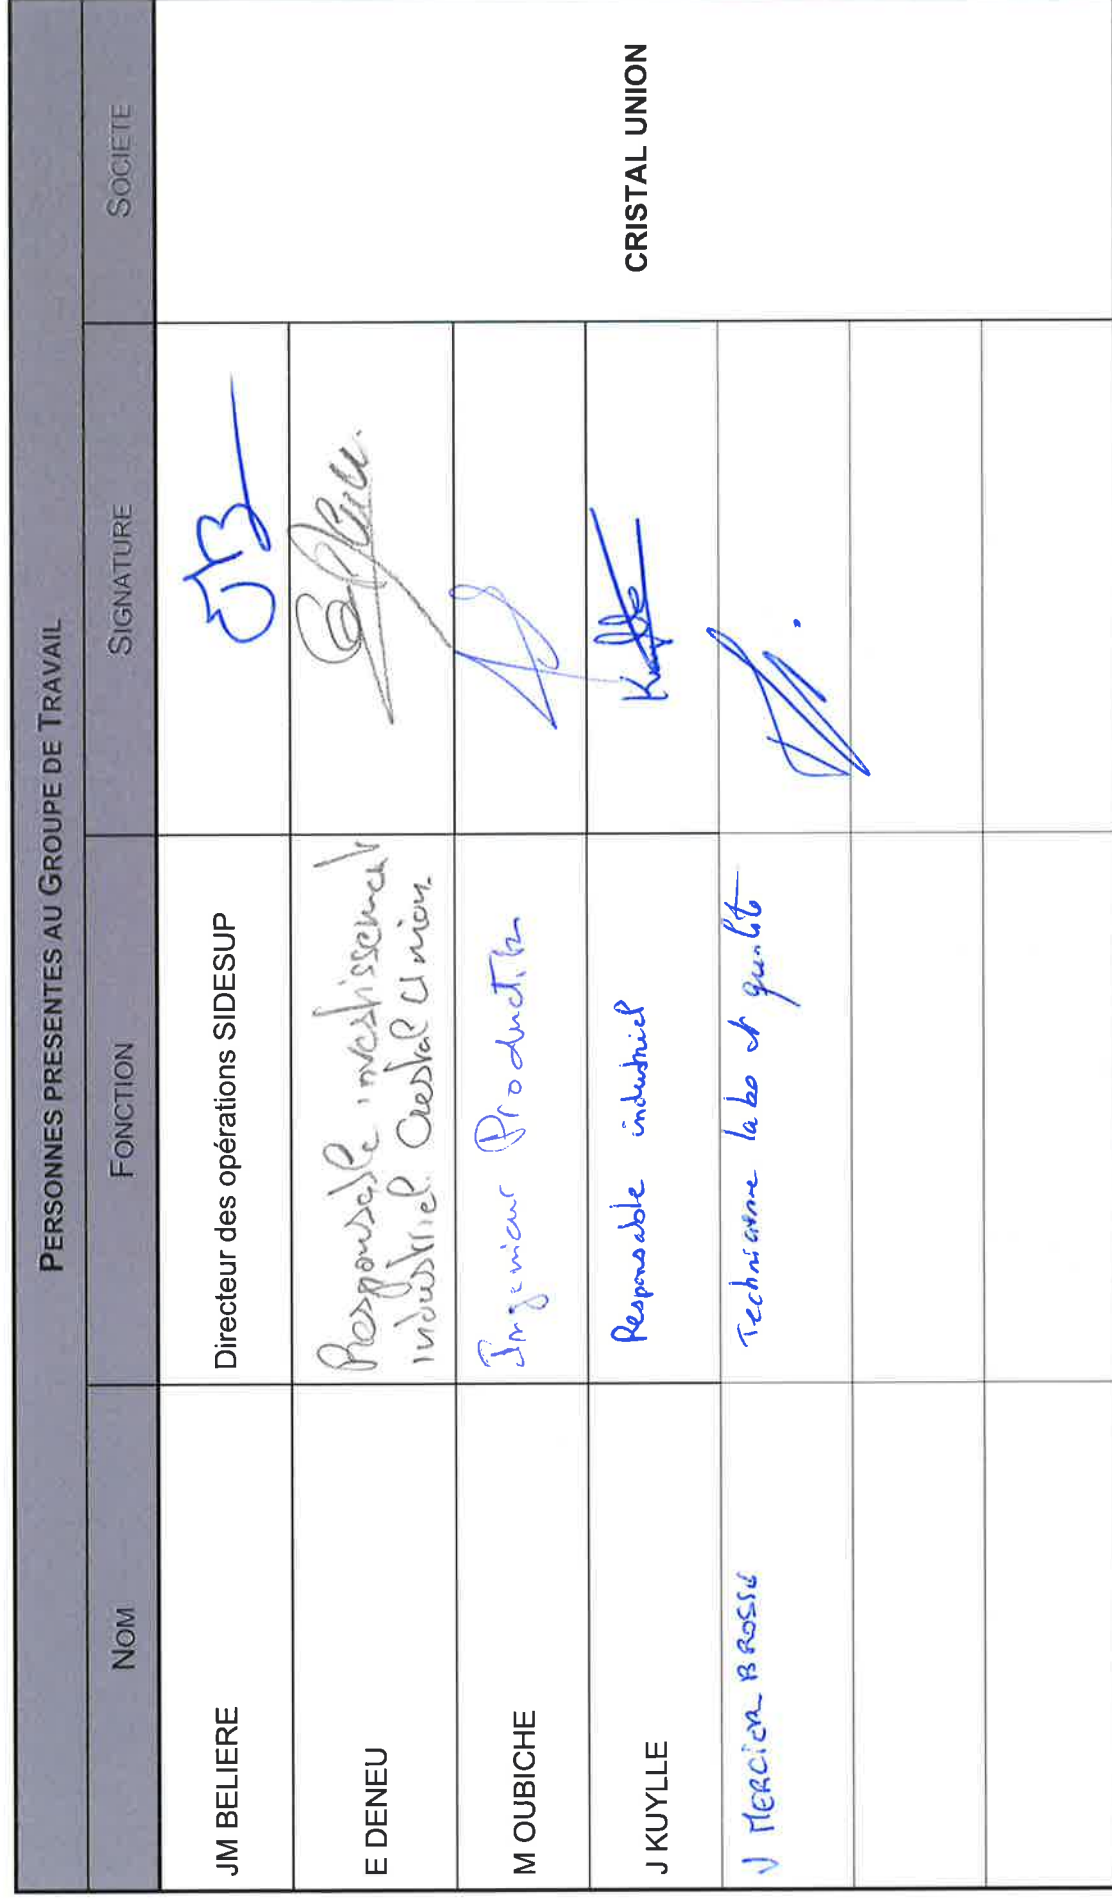 PERSONNES PRESENTES AU GROUPE DE TRAVAIL
NOM FONCTION SIGNATURE SOCIETE
JM BELIERE Directeur des opérations SIDESUP
E DENEU Responsable investissement
industriel Cristal Union
M OUBICHE Ingenieur Production
J KUYLLE Responsable industriel
V MERCIER BROSSE Technicienne labo et qualité
CRISTAL UNION